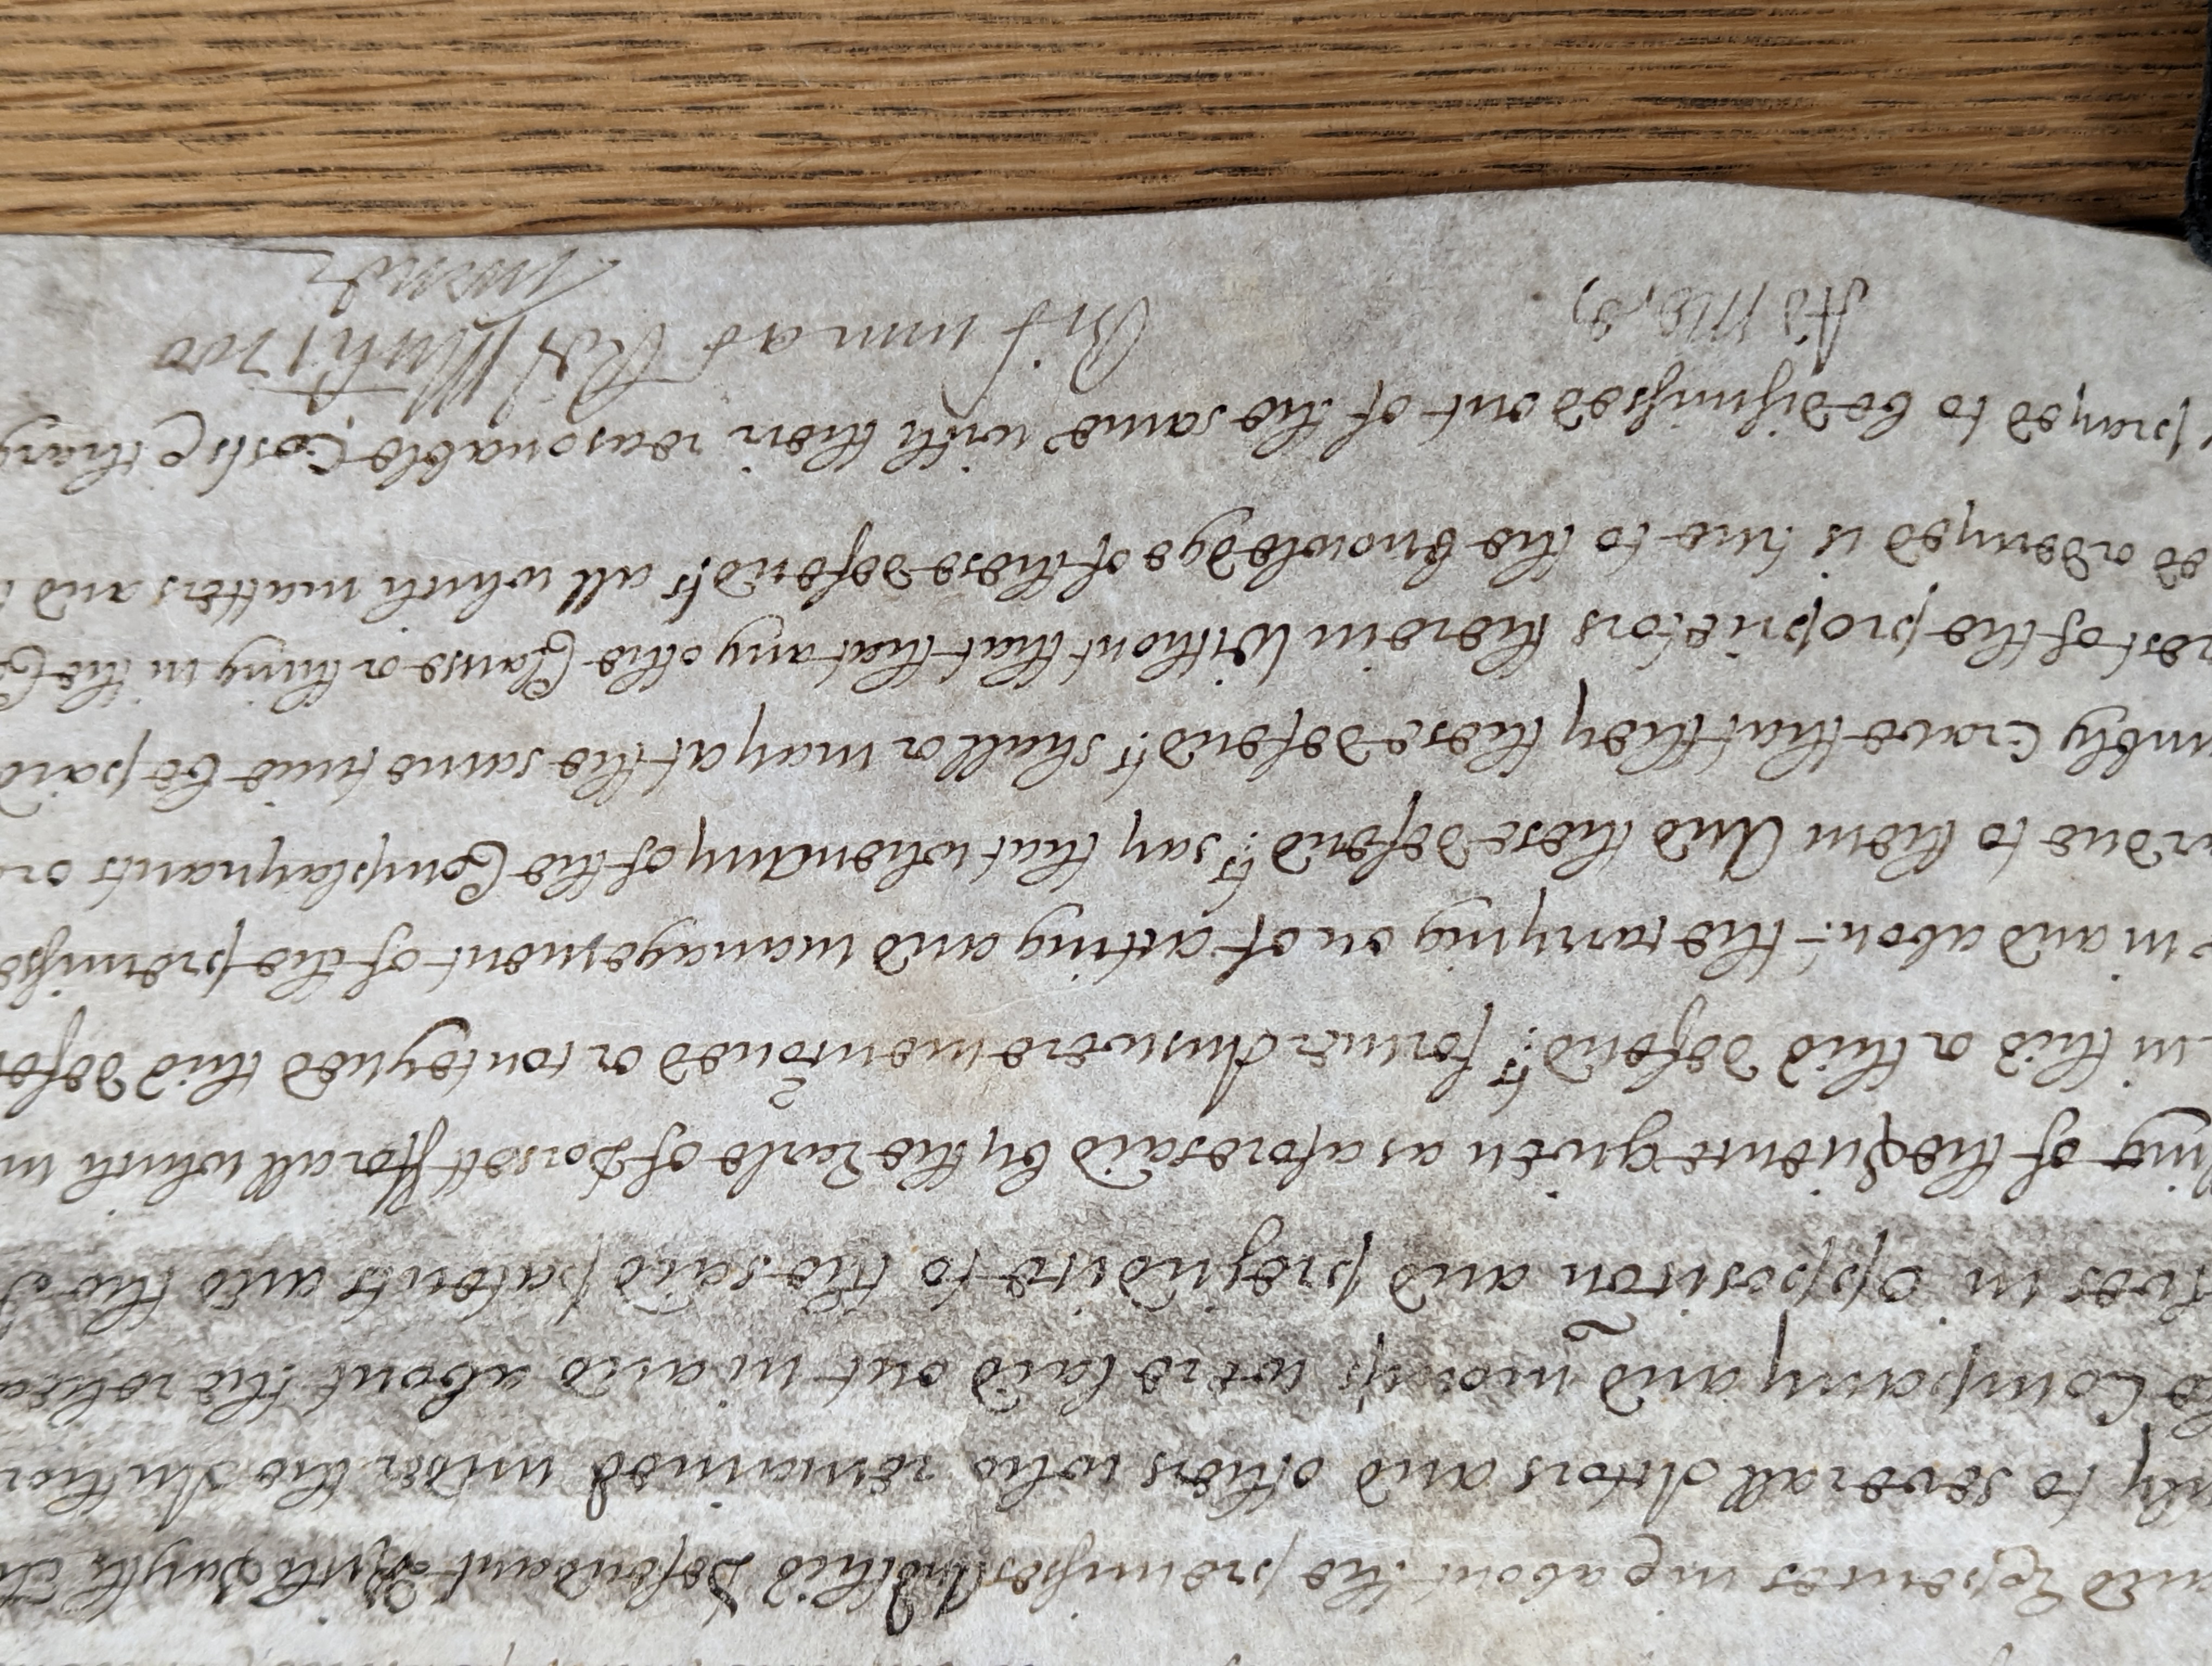 Expences in & about the premisses And this Defendant sayth th
to severall Actors and others who remained under the Author
Company and moneys were laid out in and about the
lves in opposicon and prejudice to the said patents and the
ing of the given as aforesaid by the Earle of Dorsett ffor all which in
in this or this defend:ts former Answere menconed or conteyned this defen
in and about the carrying on of acting and management of the premisse
due to them And these defend:ts say that when Any of the Complaynants or
umbly Crave that they these defend:ts shall or may at the same time be paid
rest of the proprietors therein Without that that any other Clause or thing in the
ed or denyed is true to the knowledge of these defend:ts all which matters and
prayed to be dismissed out of the same with their reasonable Costs & charg
1700